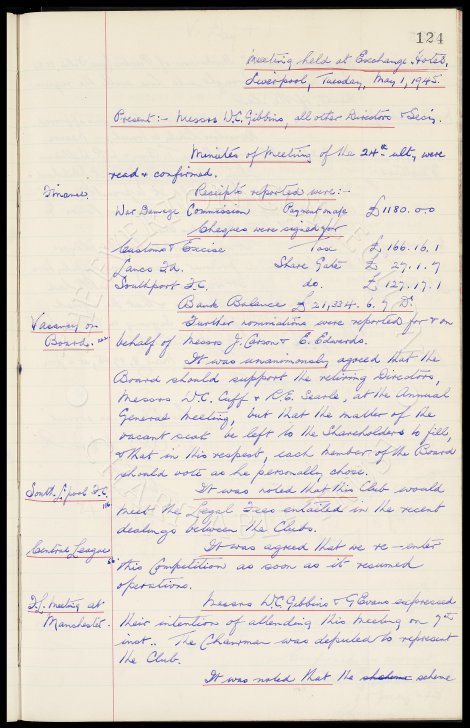 124
Meeting held at Exchange Hotel,
Liverpool, Tuesday, May 1, 1945
Present:- Messrs W.C. Gibbins, all other Directors & Secy.
Minutes of Meeting of the 24th ult, were
read & confirmed.
Finance. Receipts reported were:-
War Damage Commission Payment made £1180.0.0
Cheques were signed for
Customs & Excise Tax £ 166.16.1
Lancs F.A. Share Gate £ 27.1.7
Southport F.C. do. £ 127.17.1
Bank Balance £21,334.6.7 Dr.
Vacancy on Further nominations were reported for & on
Board. behalf of Messrs J. Corson & E. Edwards.
It was unanimously agreed that the
Board should support the retiring Directors,
Messrs W.C. Cuff & R.E. Searle, at the Annual
General Meeting, but that the matter of the
vacant seat be left to the Shareholders to fill,
& that in this respect, each member of the Board
should vote as he personally chose.
South L'pool F.C. It was noted that this Club would
meet the Legal Fees entailed in the recent
dealings between the Clubs.
Central League It was agreed that we re-enter
this Competition as soon as it resumed
operations.
F.L. Meeting at Messrs W.C. Gibbins & G Evans expressed
Manchester. their intention of attending this Meeting on 7th
inst.. The Chairman was deputed to represent
the Club.
It was noted that the scheme scheme